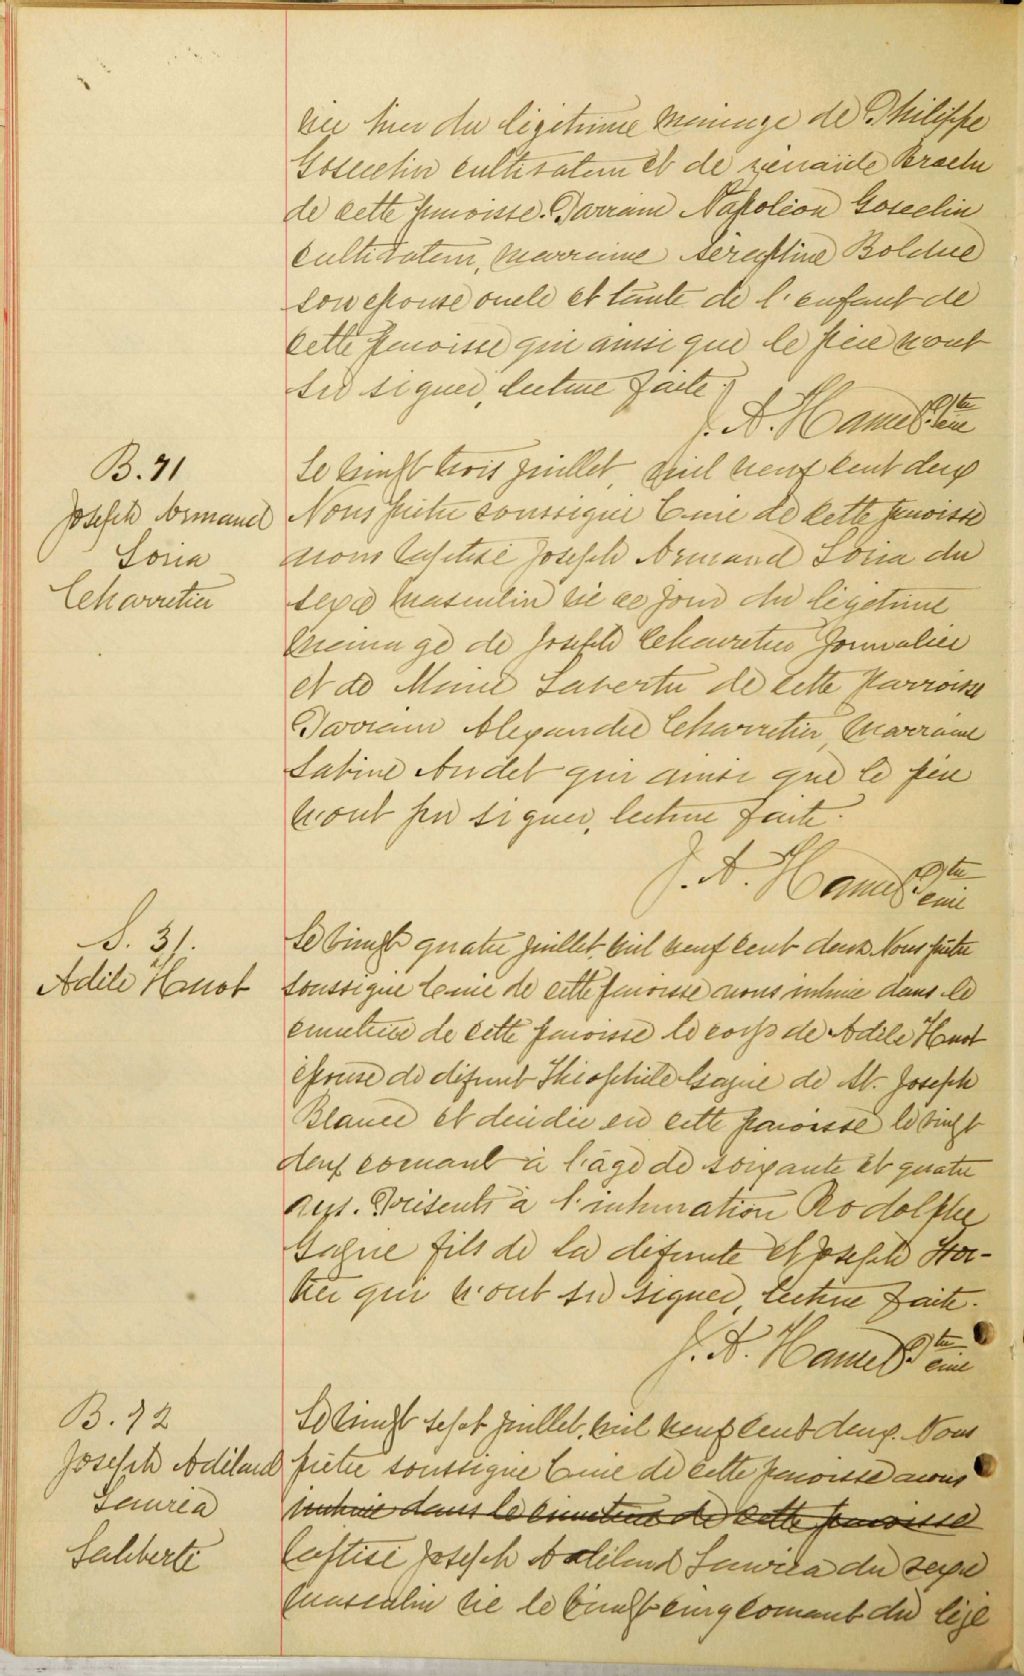 née hier du légitime mariage de Philippe
Gosselin cultivateur et de Zénaïde Brochu
de cette paroisse. Parrain Napoléon Gosselin
cultivateur, marraine Séraphine Bolduc
son épouse oncle et tante de l'enfant de
cette paroisse qui ainsi que le père n'ont
su signer, lecture faite.
J. A. Hamel Ptre curé
B. 71
Joseph Armand
Loria
Charretier
Le vingt trois juillet, mil neuf cent deux
Nous prêtre soussigné Curé de cette paroisse
avons baptisé Joseph Armand Loria du
sexe masculin né ce jour du légitime
mariage de Joseph Charretier Journalier
et de Marie Lavertu de cette parroisse
Parrain Alexandre Charretier, marraine
Sabine Audet qui ainsi que le père
n'ont pu signer, lecture faite.
J. A. Hamel Ptre curé
S. 31.
Adèle Huot
Le vingt quatre juillet, mil neuf cent deux. Nous prêtre
soussigné Curé de cette paroisse avons inhumé dans le
cimetière de cette paroisse le corps de Adèle Huot
épouse de défunt Théophile Gagné de St. Joseph
Beauce et décédée en cette paroisse le vingt
deux courant à l'âge de soixante et quatre
ans. Présents à l'inhumation Rodolphe
Gagné fils de la défunte et Joseph
qui n'ont su signer, lecture faite.
J. A. Hamel Ptre curé
B. 72
Joseph Adélard
Lauréa
Laliberté
Le vingt sept juillet, mil neuf cent deux. Nous
prêtre soussigné Curé de cette paroisse avons
inhumé dans le cimetière de cette paroisse
baptisé Joseph Adélard Lauréa du sexe
masculin né le vingt cinq courant du légi